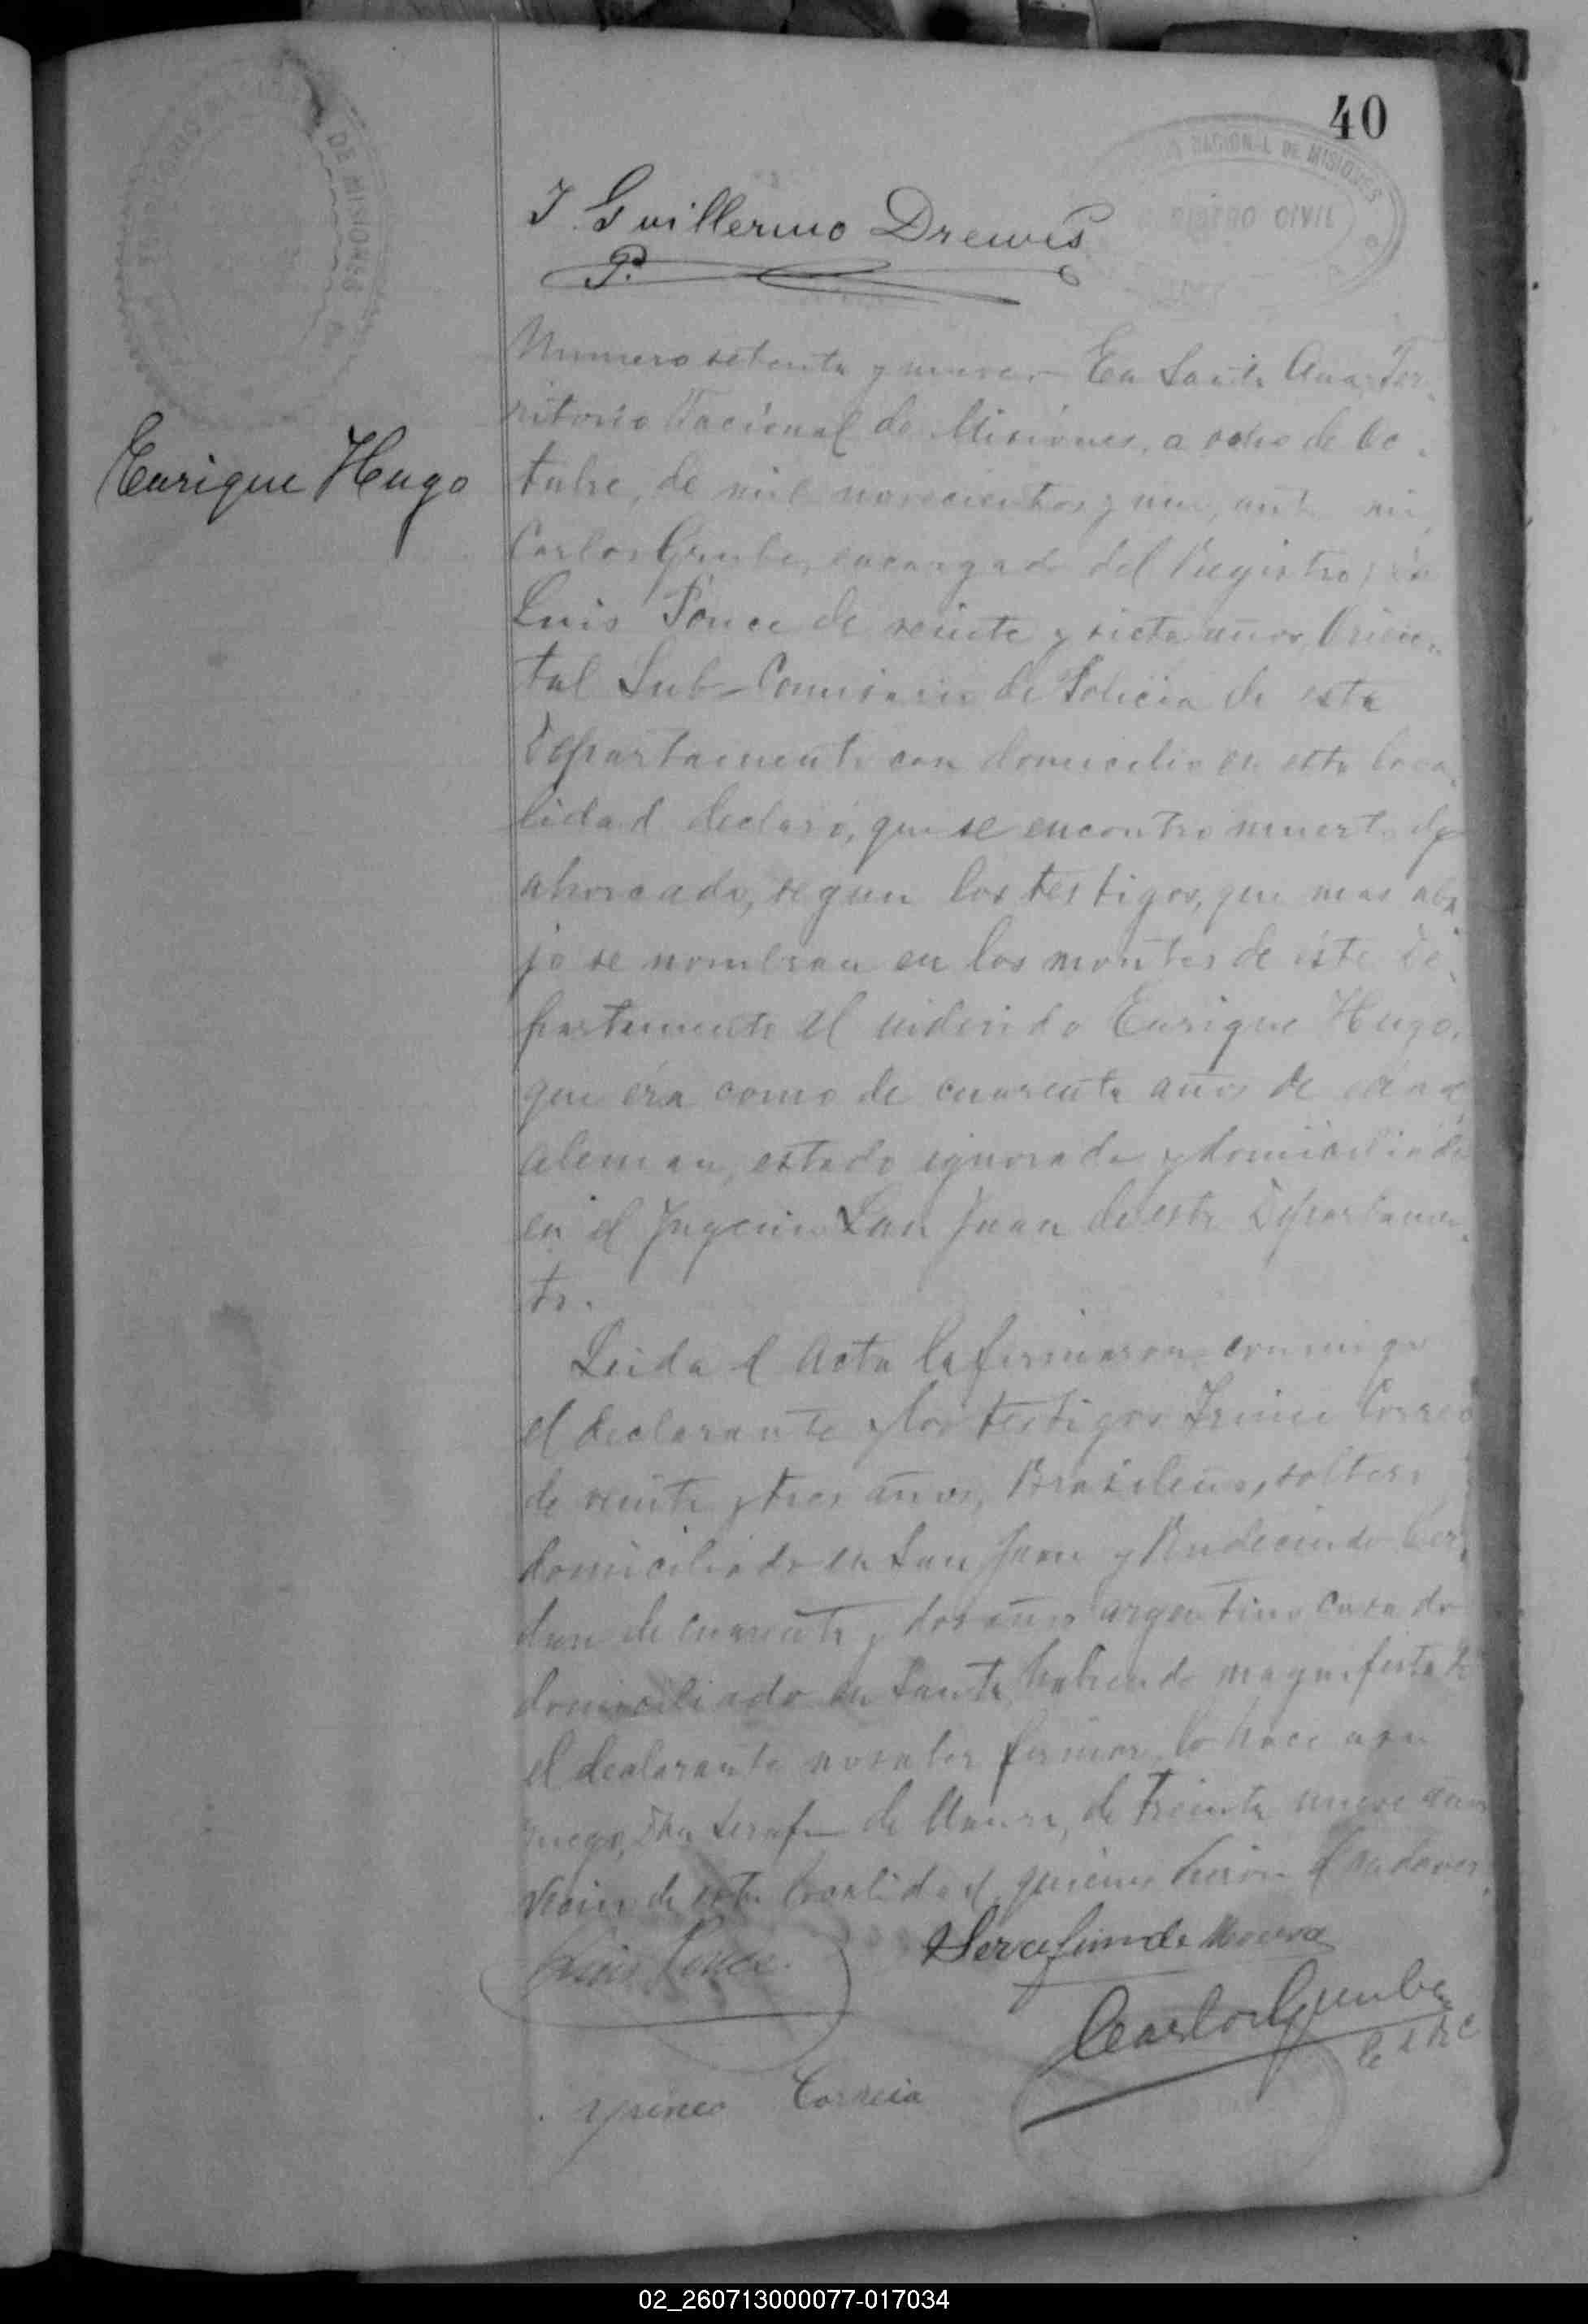 40
NACIONAL DE MISIONES
REGISTRO CIVIL
DE MISIONES
J. Guillermo Drewes
P.
Enrique Hugo
Numero setenta y nueve. En Santa Ana, Ter-
ritorio Nacional de Misiones, a ocho de Oc-
tubre, de mil novecientos y uno, ante mi,
Carlos Gruber, encargado del Registro,
Luis Ponce de veinte y siete años, Orien-
tal Sub-Comisario de Policia de este
Departamento con domicilio en esta loca-
lidad declaró, que se encontro muerto
ahorcado, segun los testigos, que mas aba
jo se nombran en los montes de este De-
partamento el individo Enrique Hugo,
que éra como de cuarenta años de edad
aleman, estado ignorado y domiciliado
en el Ingenio San Juan de este Departamen-
to.
Leida el Acta la firmaron conmigo
el declarante y los testigos Irineo Correa
de veinte y tres años, Brasileño, soltero
domiciliado en San Juan y Rudecindo
de cuarenta y dos años argentino casado
domiciliado en Santa habiendo magnifestado
el declarante no saber firmar lo hace a su
ruego, Don Serafin de Moura, de treinta nueve años
vecino de esta localidad, quienes vieron el cadaver.
Luis Ponce.
Serafim de Moura
Carlos Gruber
E d R C
Yrineo Correia
02_260713000077-017034